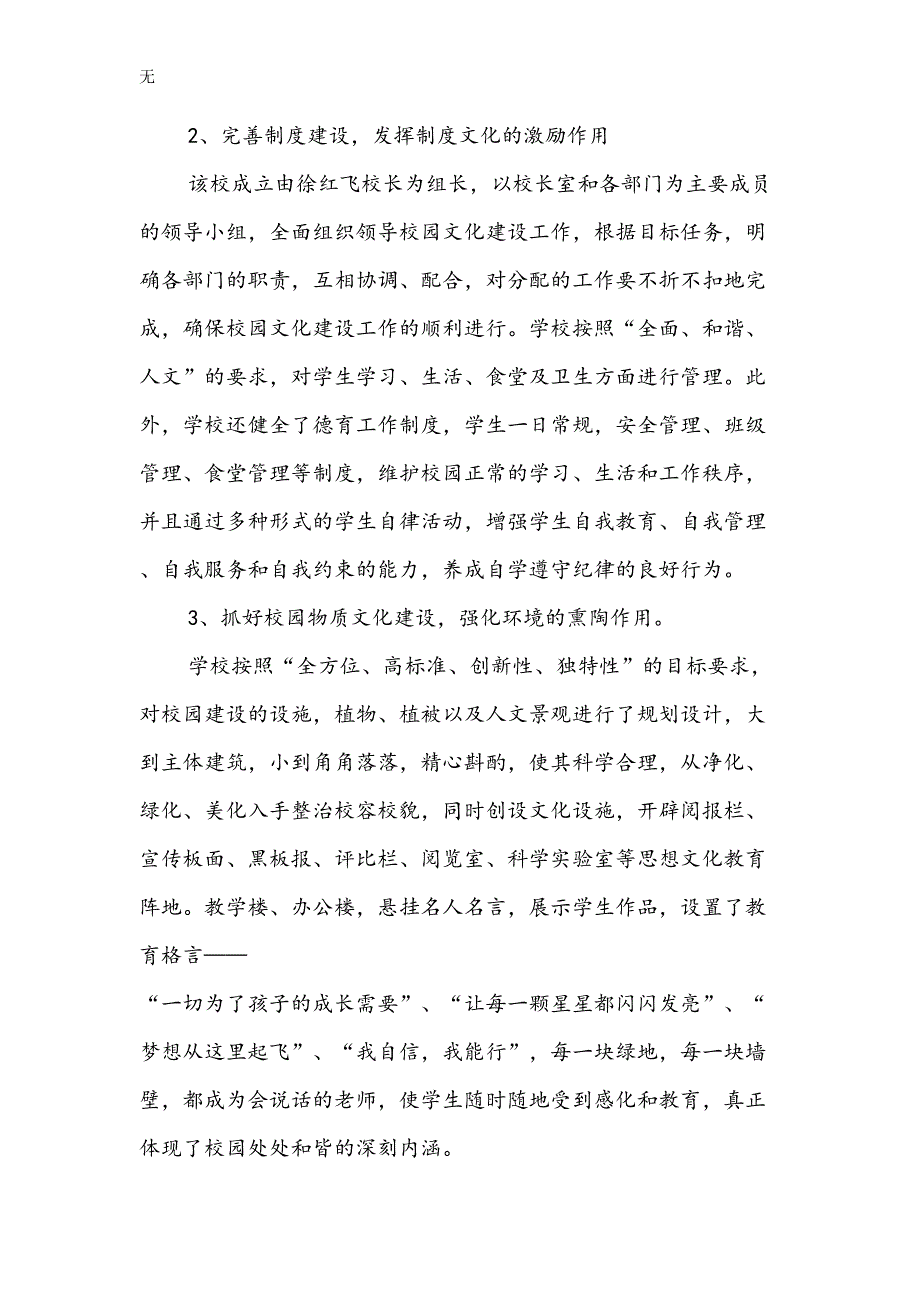 无
2、完善制度建设，发挥制度文化的激励作用
该校成立由徐红飞校长为组长，以校长室和各部门为主要成员
的领导小组，全面组织领导校园文化建设工作，根据目标任务，明
确各部门的职责，互相协调、配合，对分配的工作要不折不扣地完
成，确保校园文化建设工作的顺利进行。学校按照“全面、和谐、
人文”的要求，对学生学习、生活、食堂及卫生方面进行管理。此
外，学校还健全了德育工作制度，学生一日常规，安全管理、班级
管理、食堂管理等制度，维护校园正常的学习、生活和工作秩序，
并且通过多种形式的学生自律活动，增强学生自我教育、自我管理
、自我服务和自我约束的能力，养成自学遵守纪律的良好行为。
3、抓好校园物质文化建设，强化环境的熏陶作用。
学校按照“全方位、高标准、创新性、独特性”的目标要求，
对校园建设的设施，植物、植被以及人文景观进行了规划设计，大
到主体建筑，小到角角落落，精心斟酌，使其科学合理，从净化、
绿化、美化入手整治校容校貌，同时创设文化设施，开辟阅报栏、
宣传板面、黑板报、评比栏、阅览室、科学实验室等思想文化教育
阵地。教学楼、办公楼，悬挂名人名言，展示学生作品，设置了教
育格言——
“一切为了孩子的成长需要”、“让每一颗星星都闪闪发亮”、“
梦想从这里起飞”、“我自信，我能行”，每一块绿地，每一块墙
壁，都成为会说话的老师，使学生随时随地受到感化和教育，真正
体现了校园处处和皆的深刻内涵。